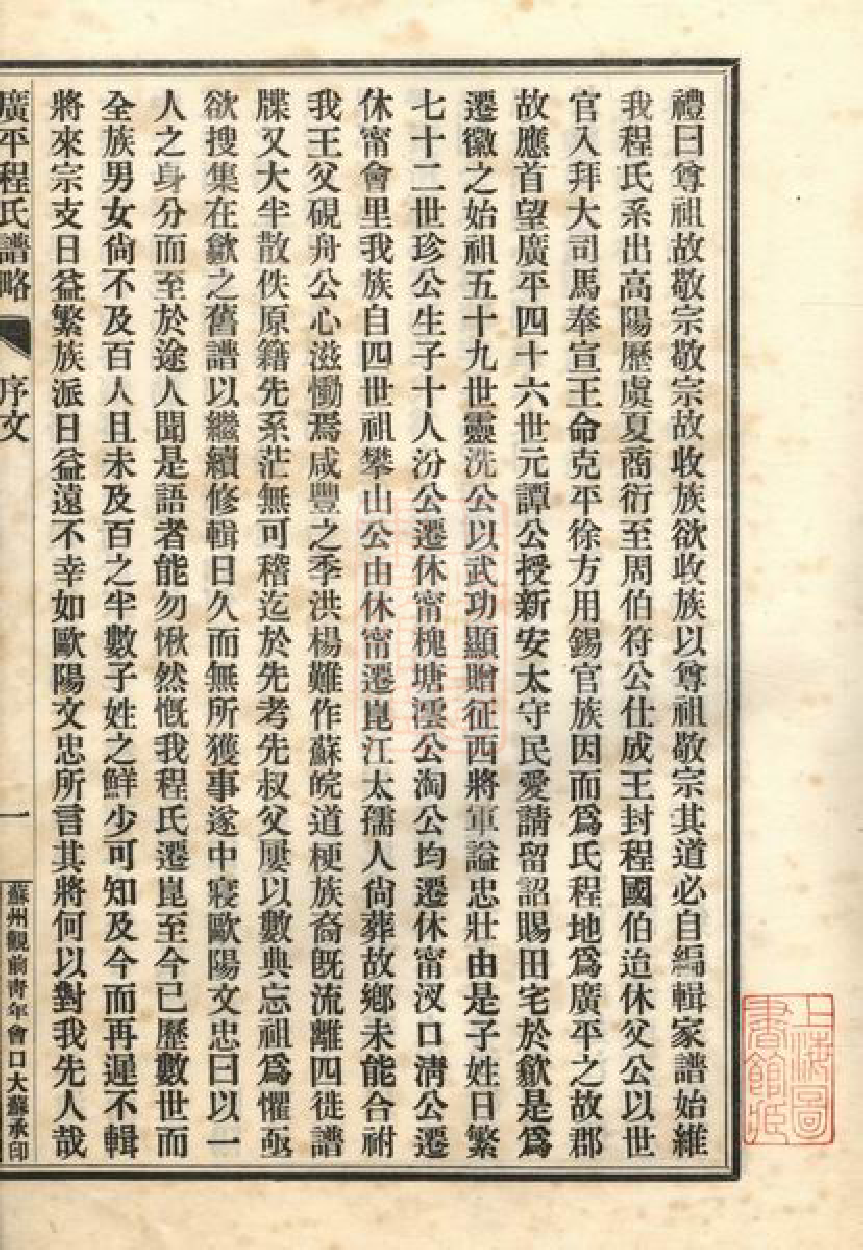 禮曰尊祖故敬宗敬宗故收族欲收族以尊祖敬宗其道必自編輯家譜始維
我程氏系出高陽歷虞夏商衍至周伯符公仕成王封程國伯迨休父公以世
官入拜大司馬奉宣王命克平徐方用錫官族因而爲氏程地爲廣平之故郡
故應首望廣平四十六世元譚公授新安太守民愛請留詔賜田宅於歙是爲
遷徽之始祖五十九世靈洗公以武功顯贈征西將軍謚忠壯由是子姓日繁
七十二世珍公生子十人汾公遷休甯槐塘澐公淘公均遷休甯汊口淸公遷
休甯會里我族自四世祖攀山公由休甯遷崑江太孺人尙葬故鄉未能合祔
我王父硯舟公心滋慟焉咸豐之季洪楊難作蘇皖道梗族裔旣流離四徙譜
牒又大半散佚原籍先系茫無可稽迄於先考先叔父屢以數典忘祖爲懼亟
欲搜集在歙之舊譜以繼續修輯日久而無所獲事遂中寢歐陽文忠曰以一
人之身分而至於途人聞是語者能勿愀然慨我程氏遷崑至今已歷數世而
全族男女尙不及百人且未及百之半數子姓之鮮少可知及今而再遲不輯
將來宗支日益繁族派日益遠不幸如歐陽文忠所言其將何以對我先人哉
廣平程氏譜略 序文 一 蘇州觀前青年會口大蘇承印
上海圖書館藏